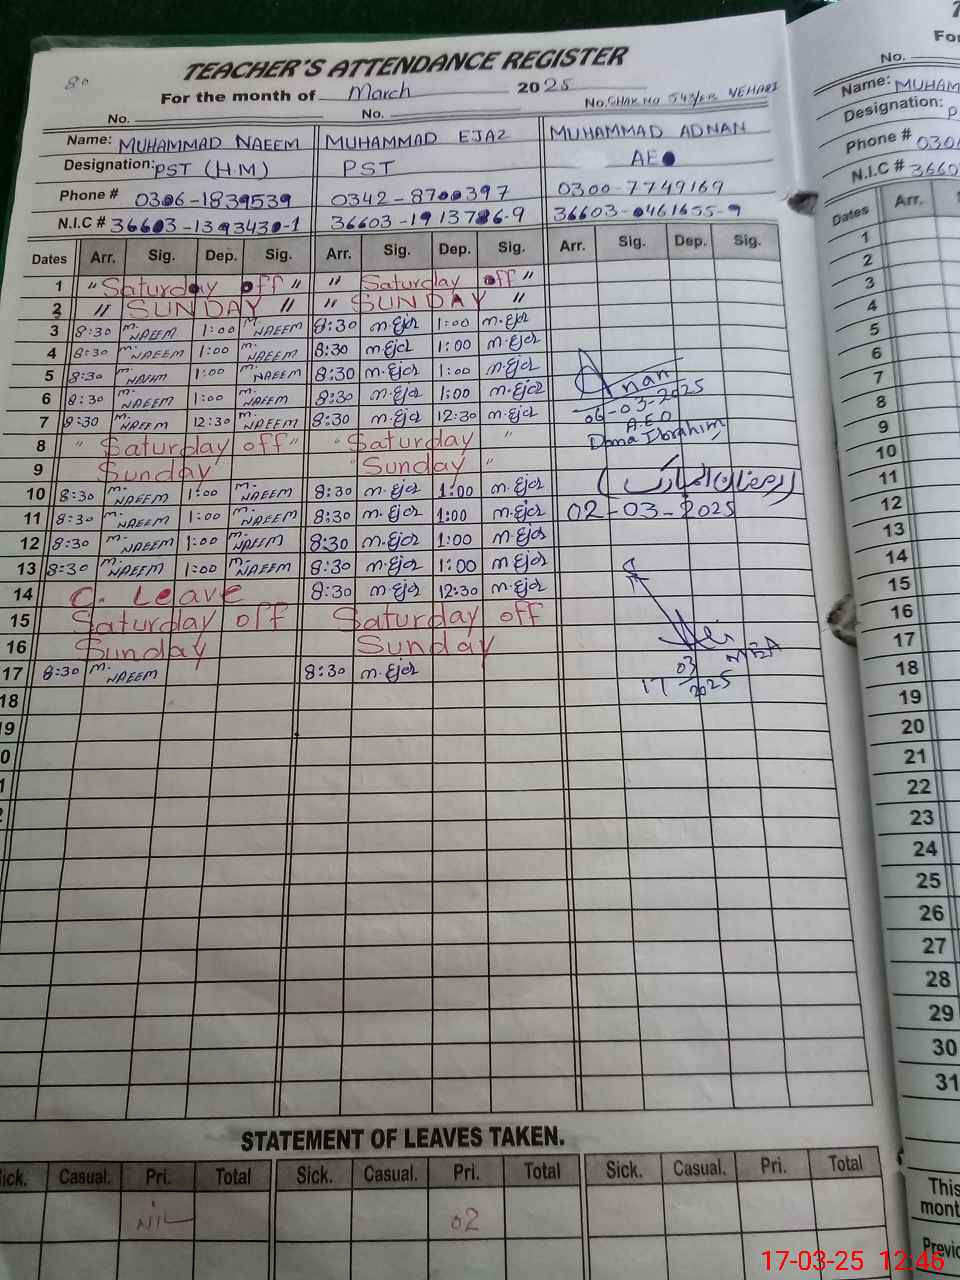 80
TEACHER'S ATTENDANCE REGISTER
For the month of March 2025
No. No. No. CHAK NO 543/EB VEHARI
Name: MUHAMMAD NAEEM MUHAMMAD EJAZ MUHAMMAD ADNAN
Designation: PST (H.M) PST AEO
Phone # 0306-1839539 0342-8700397 0300-7749169
N.I.C # 36603-1393430-1 36603-1913786-9 36603-0461655-9
Dates Arr. Sig. Dep. Sig. Arr. Sig. Dep. Sig. Arr. Sig. Dep. Sig.
1 " Saturday off " " Saturday off "
2 " SUNDAY " " SUNDAY "
3 8:30 M. NAEEM 1:00 M. NAEEM 8:30 M.Ejaz 1:00 M.Ejaz
4 8:30 M. NAEEM 1:00 M. NAEEM 8:30 M.Ejaz 1:00 M.Ejaz
5 8:30 M. NAEEM 1:00 M. NAEEM 8:30 M.Ejaz 1:00 M.Ejaz
6 8:30 M. NAEEM 1:00 M. NAEEM 8:30 M.Ejaz 1:00 M.Ejaz
7 8:30 M. NAEEM 12:30 M. NAEEM 8:30 M.Ejaz 12:30 M.Ejaz
Adnan
06-03-2025
A.E.O
Dona Ibrahim
8 " Saturday off " " Saturday "
9 Sunday " Sunday "
10 8:30 M. NAEEM 1:00 M. NAEEM 8:30 M.Ejaz 1:00 M.Ejaz (رمضان المبارک)
11 8:30 M. NAEEM 1:00 M. NAEEM 8:30 M.Ejaz 1:00 M.Ejaz 02-03-2025
12 8:30 M. NAEEM 1:00 M. NAEEM 8:30 M.Ejaz 1:00 M.Ejaz
13 8:30 M. NAEEM 1:00 M. NAEEM 8:30 M.Ejaz 1:00 M.Ejaz
14 C. Leave 8:30 M.Ejaz 12:30 M.Ejaz
15 Saturday off Saturday off
16 Sunday Sunday
17 8:30 M. NAEEM 8:30 M.Ejaz
MEA
17 03 2025
18
19
0
1
2
STATEMENT OF LEAVES TAKEN.
Sick. Casual. Pri. Total Sick. Casual. Pri. Total Sick. Casual. Pri. Total
NIL 02
For
No.
Name: MUHAM
Designation: P
Phone # 030
N.I.C # 3660
Dates Arr.
1
2
3
4
5
6
7
8
9
10
11
12
13
14
15
16
17
18
19
20
21
22
23
24
25
26
27
28
29
30
31
This
mont
Previo
17-03-25 12:46